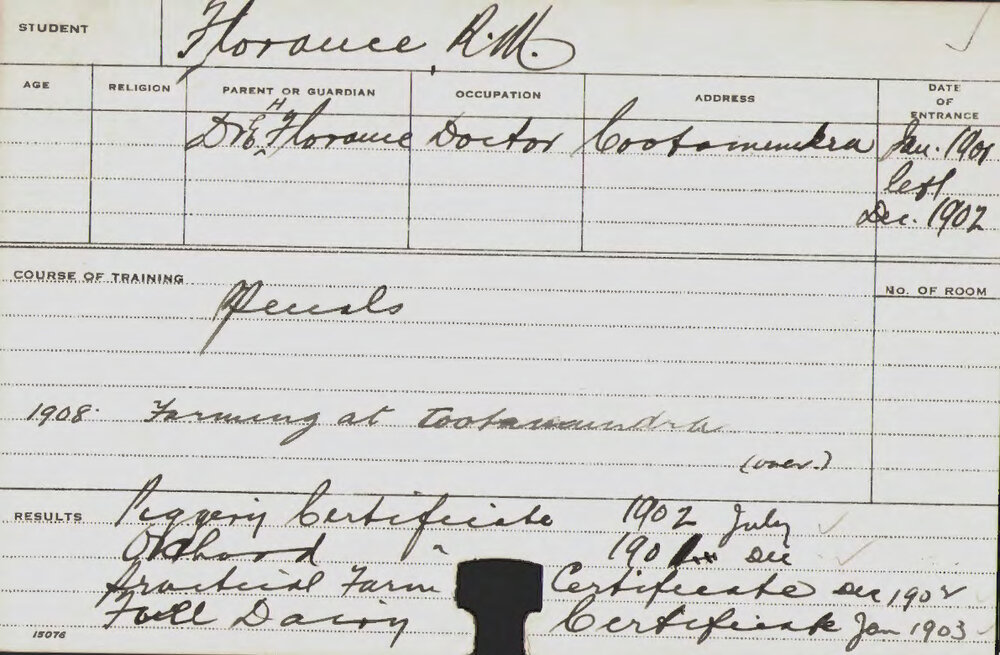 STUDENT Florance, R.M.
AGE RELIGION PARENT OR GUARDIAN OCCUPATION ADDRESS DATE OF ENTRANCE
H
Dr E Florance Doctor Cootamundra Jan. 1901
left
Dec. 1902
COURSE OF TRAINING
No. OF ROOM
1908. Farming at Cootamundra
(over.)
RESULTS Piggery Certificate 1902 July
Orchard " 1901 Dec
Practical Farm Certificate Dec 1902
Full Dairy Certificate Jan 1903
15076